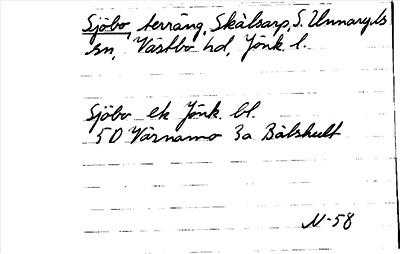 Sjöbo, terräng, Skålsarp, S. Unnaryds
sn, Västbo hd, Jönk. l.
Sjöbo ek Jönk. bl.
5D Värnamo 3a Bälshult
N-58